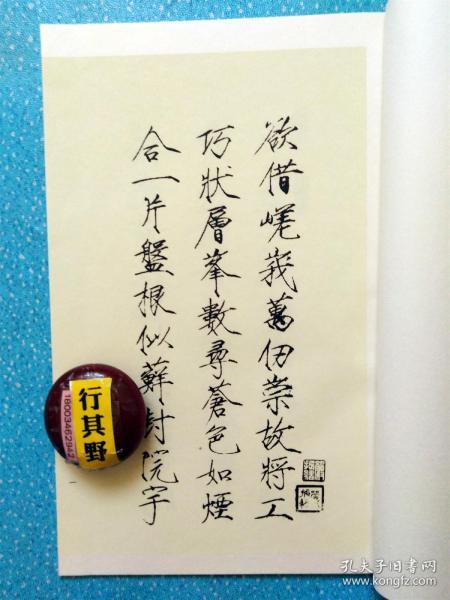 欲借嵯峩萬仞崇故將工
巧狀層峯數尋蒼色如煙
合一片盤根似蘚封院宇
行其野
18003462942
孔夫子旧书网
www.kongfz.com